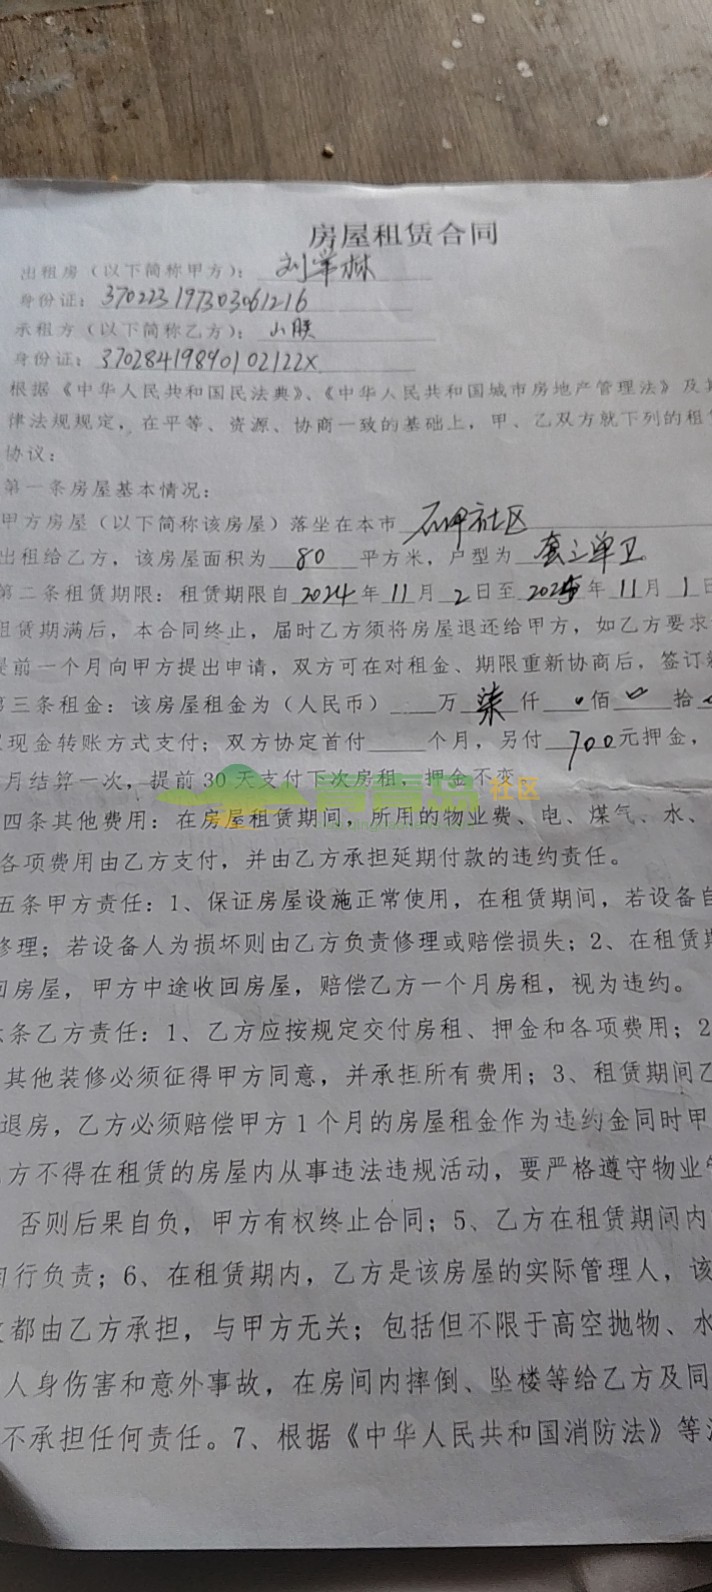 房屋租赁合同
出租房（以下简称甲方）：刘学林
身份证：370223197303061216
承租方（以下简称乙方）：山朕
身份证：37028419890102122X
根据《中华人民共和国民法典》、《中华人民共和国城市房地产管理法》及其
律法规规定，在平等、资源、协商一致的基础上，甲、乙双方就下列的租
协议：
第一条房屋基本情况：
甲方房屋（以下简称该房屋）落坐在本市 石甲社区
出租给乙方，该房屋面积为 80 平方米，户型为 套三单卫
第二条租赁期限：租赁期限自 2024 年 11 月 2 日至 2025 年 11 月 1 日
租赁期满后，本合同终止，届时乙方须将房屋退还给甲方，如乙方要求
提前一个月向甲方提出申请，双方可在对租金、期限重新协商后，签订
第三条租金：该房屋租金为（人民币）___万 柒 仟 0 佰 0 拾
现金转账方式支付；双方协定首付___个月，另付 700 元押金，
月结算一次，提前 30 天支付下次房租，押金不变
青青岛社区
四条其他费用：在房屋租赁期间，所用的物业费、电、煤气、水、
各项费用由乙方支付，并由乙方承担延期付款的违约责任。
五条甲方责任：1、保证房屋设施正常使用，在租赁期间，若设备自
修理；若设备人为损坏则由乙方负责修理或赔偿损失；2、在租赁期
回房屋，甲方中途收回房屋，赔偿乙方一个月房租，视为违约。
条乙方责任：1、乙方应按规定交付房租、押金和各项费用；2
其他装修必须征得甲方同意，并承担所有费用；3、租赁期间乙
退房，乙方必须赔偿甲方 1 个月的房屋租金作为违约金同时甲
方不得在租赁的房屋内从事违法违规活动，要严格遵守物业管
否则后果自负，甲方有权终止合同；5、乙方在租赁期间内
自行负责；6、在租赁期内，乙方是该房屋的实际管理人，该
都由乙方承担，与甲方无关；包括但不限于高空抛物、水
人身伤害和意外事故，在房间内摔倒、坠楼等给乙方及同
不承担任何责任。7、根据《中华人民共和国消防法》等